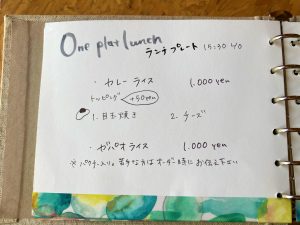 One plat lunch
ランチプレート 15:30 L/O
・カレーライス 1.000 yen
トッピング +50yen
1. 目玉焼き 2. チーズ
・ガパオライス 1.000 yen
※パクチー入り。苦手な方はオーダー時にお伝え下さい